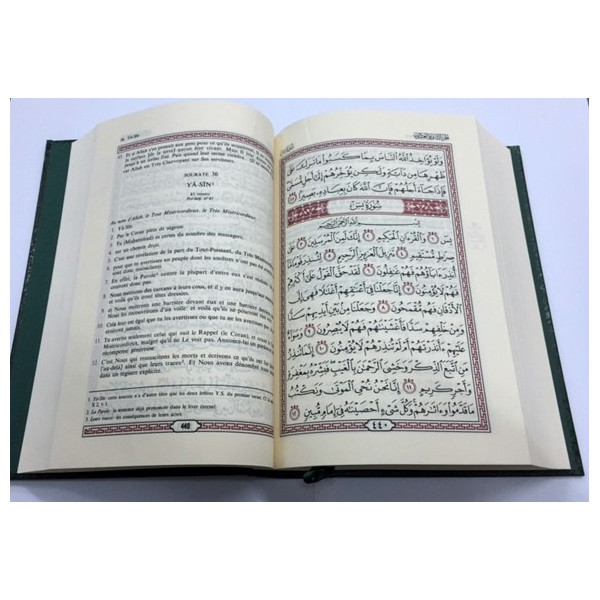 36. Yâ-Sîn
45. Et si Allah s'en prenait aux gens pour ce qu'ils acquièrent, Il ne laisserait
à la surface [de la terre] aucun être vivant. Mais Il leur donne un délai
jusqu'à un terme fixé. Puis quand leur terme viendra...
car Allah est Très Clairvoyant sur Ses serviteurs.
SOURATE 36
YÂ-SÎN¹
83 versets
Pré-hég. n° 41
Au nom d'Allah, le Tout Miséricordieux, le Très Miséricordieux.
1. Yâ-Sîn.
2. Par le Coran plein de sagesse.
3. Tu (Muhammad) es certes du nombre des messagers,
4. sur un chemin droit.
5. C'est une révélation de la part du Tout-Puissant, du Très Miséricordieux,
6. pour que tu avertisses un peuple dont les ancêtres n'ont pas été avertis: ils sont
donc insouciants.
7. En effet, la Parole² contre la plupart d'entre eux s'est réalisée: ils ne croiront
donc pas.
8. Nous mettrons des carcans à leurs cous, et il y en aura jusqu'aux mentons:
et voilà qu'ils iront têtes dressées.
9. et Nous mettrons une barrière devant eux et une barrière derrière eux;
Nous les recouvrirons d'un voile: et voilà qu'ils ne pourront rien voir.
10. Cela leur est égal que tu les avertisses ou que tu ne les avertisses pas: ils ne croiront
jamais.
11. Tu avertis seulement celui qui suit le Rappel (le Coran), et craint le Tout
Miséricordieux, malgré qu'il ne Le voit pas. Annonce-lui un pardon et une
récompense généreuse.
12. C'est Nous qui ressuscitons les morts et écrivons ce qu'ils ont fait [pour
l'au-delà] ainsi que leurs traces³. Et Nous avons dénombré toute chose
dans un registre explicite.
1. Yâ-Sîn: cette sourate n'a d'autre titre que les deux lettres Y.S. du premier verset. Cf note à
S.2, v. 1.
2. La Parole: la menace déjà prononcée dans le livre éternel.
3. Leurs traces: les conséquences de leurs actes.
440
وَلَوْ يُؤَاخِذُ اللَّهُ النَّاسَ بِمَا كَسَبُوا مَا تَرَكَ عَلَىٰ
ظَهْرِهَا مِن دَابَّةٍ وَلَٰكِن يُؤَخِّرُهُمْ إِلَىٰ أَجَلٍ مُّسَمًّى
فَإِذَا جَاءَ أَجَلُهُمْ فَإِنَّ اللَّهَ كَانَ بِعِبَادِهِ بَصِيرًا ٤٥
سُورَةُ يسٓ
بِسْمِ اللَّهِ الرَّحْمَٰنِ الرَّحِيمِ
يسٓ ١ وَالْقُرْءَانِ الْحَكِيمِ ٢ إِنَّكَ لَمِنَ الْمُرْسَلِينَ ٣ عَلَىٰ
صِرَاطٍ مُّسْتَقِيمٍ ٤ تَنزِيلَ الْعَزِيزِ الرَّحِيمِ ٥ لِتُنذِرَ قَوْمًا مَّا
أُنذِرَ ءَابَاؤُهُمْ فَهُمْ غَافِلُونَ ٦ لَقَدْ حَقَّ الْقَوْلُ عَلَىٰ أَكْثَرِهِمْ
فَهُمْ لَا يُؤْمِنُونَ ٧ إِنَّا جَعَلْنَا فِي أَعْنَاقِهِمْ أَغْلَالًا فَهِيَ إِلَى
الْأَذْقَانِ فَهُم مُّقْمَحُونَ ٨ وَجَعَلْنَا مِن بَيْنِ أَيْدِيهِمْ سَدًّا
وَمِنْ خَلْفِهِمْ سَدًّا فَأَغْشَيْنَاهُمْ فَهُمْ لَا يُبْصِرُونَ ٩ وَسَوَاءٌ
عَلَيْهِمْ ءَأَنذَرْتَهُمْ أَمْ لَمْ تُنذِرْهُمْ لَا يُؤْمِنُونَ ١٠ إِنَّمَا تُنذِرُ
مَنِ اتَّبَعَ الذِّكْرَ وَخَشِيَ الرَّحْمَٰنَ بِالْغَيْبِ فَبَشِّرْهُ بِمَغْفِرَةٍ
وَأَجْرٍ كَرِيمٍ ١١ إِنَّا نَحْنُ نُحْيِي الْمَوْتَىٰ وَنَكْتُبُ
مَا قَدَّمُوا وَءَاثَارَهُمْ وَكُلَّ شَيْءٍ أَحْصَيْنَاهُ فِي إِمَامٍ مُّبِينٍ ١٢
٤٤٠